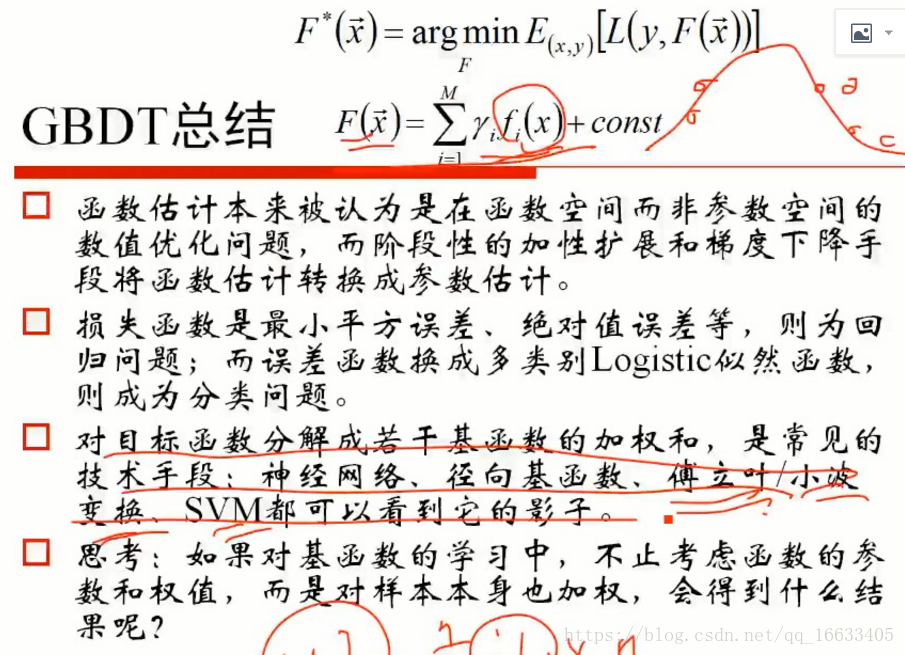 F*(x⃗) = arg min E₍ₓ,ᵧ₎[L(y, F(x⃗))]
F
GBDT总结
F(x⃗) = ∑ γᵢfᵢ(x) + const
M
i=1
函数估计本来被认为是在函数空间而非参数空间的
数值优化问题，而阶段性的加性扩展和梯度下降手
段将函数估计转换成参数估计。
损失函数是最小平方误差、绝对值误差等，则为回
归问题；而误差函数换成多类别Logistic似然函数，
则成为分类问题。
对目标函数分解成若干基函数的加权和，是常见的
技术手段：神经网络、径向基函数、傅立叶/小波
变换、SVM都可以看到它的影子。
思考：如果对基函数的学习中，不止考虑函数的参
数和权值，而是对样本本身也加权，会得到什么结
果呢？
https://blog.csdn.net/qq_16633405